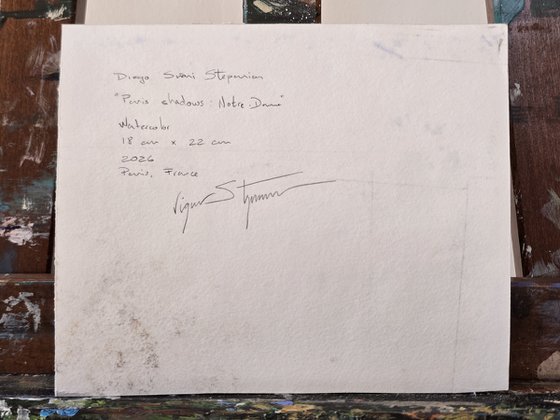 Diego Sveni Stepanian
"Paris shadows: Notre-Dame"
Watercolor
18 cm x 22 cm
2026
Paris, France